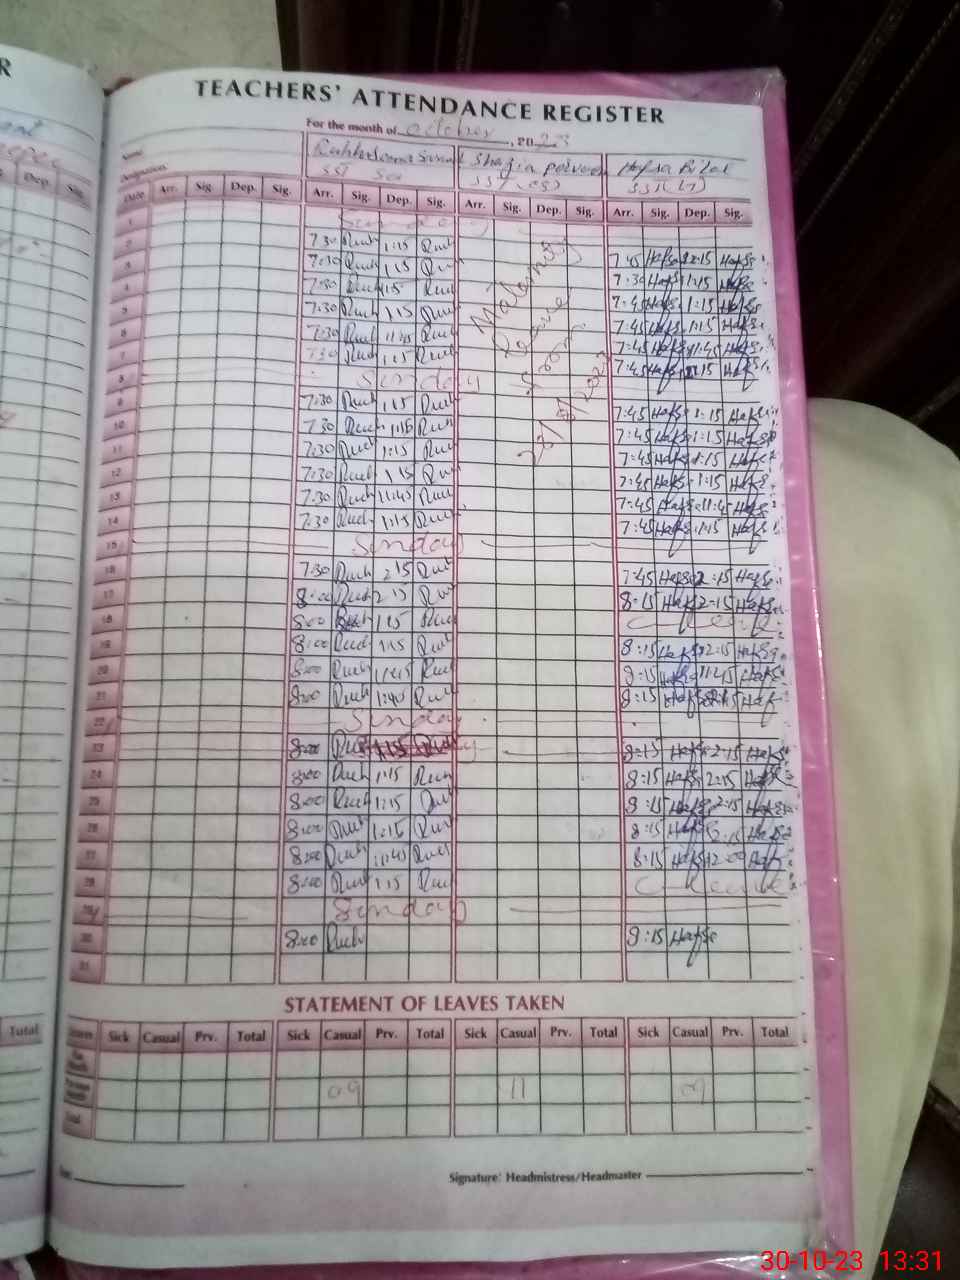 TEACHERS' ATTENDANCE REGISTER
For the month of October, 20 23
Name
Designation
Shazia Parveen Hafsa Bilal
SST SST
Date Arr. Sig. Dep. Sig. Arr. Sig. Dep. Sig. Arr. Sig. Dep. Sig. Arr. Sig. Dep. Sig.
1 Sunday
2 7:30 Ruch 1:15 Ruch 7:45 Hafsa 1:15 Hafsa
3 7:30 Ruch 1:15 Ruch 7:30 Hafsa 1:15 Hafsa
4 7:30 Ruch 1:15 Ruch 7:45 Hafsa 1:15 Hafsa
5 7:30 Ruch 1:15 Ruch 7:45 Hafsa 1:15 Hafsa
6 7:30 Ruch 11:45 Ruch 7:45 Hafsa 11:45 Hafsa
7 7:30 Ruch 1:15 Ruch 7:45 Hafsa 1:15 Hafsa
8 Sunday
Maternity
Leave
from
9 7:30 Ruch 1:15 Ruch 7:45 Hafsa 1:15 Hafsa
10 7:30 Ruch 1:15 Ruch 7:45 Hafsa 1:15 Hafsa
11 7:30 Ruch 1:15 Ruch 7:45 Hafsa 1:15 Hafsa
12 7:30 Ruch 1:15 Ruch 7:45 Hafsa 1:15 Hafsa
13 7:30 Ruch 11:40 Ruch 7:45 Hafsa 11:45 Hafsa
14 7:30 Ruch 1:15 Ruch 7:45 Hafsa 1:15 Hafsa
15 Sunday
16 7:30 Ruch 2:15 Ruch 7:45 Hafsa 2:15 Hafsa
17 8:00 Ruch 2:15 Ruch 8:15 Hafsa 2:15 Hafsa
18 8:00 Ruch 1:15 Ruch C Leave
19 8:00 Ruch 1:15 Ruch 8:15 Hafsa 2:15 Hafsa
20 8:00 Ruch 11:45 Ruch 8:15 Hafsa 11:45 Hafsa
21 8:00 Ruch 1:40 Ruch 8:15 Hafsa Hafsa
22 Sunday
23 8:00 Ruch 1:15 Ruch 8:15 Hafsa 2:15 Hafsa
24 8:00 Ruch 1:15 Ruch 8:15 Hafsa 2:15 Hafsa
25 8:00 Ruch 1:15 Ruch 8:15 Hafsa 2:15 Hafsa
26 8:00 Ruch 1:15 Ruch 8:15 Hafsa 2:15 Hafsa
27 8:00 Ruch 11:40 Ruch 8:15 Hafsa 12:00 Hafsa
28 8:00 Ruch 1:15 Ruch C Leave
29 Sunday
30 8:00 Ruch 8:15 Hafsa
31
STATEMENT OF LEAVES TAKEN
Leaves Sick Casual Prv. Total Sick Casual Prv. Total Sick Casual Prv. Total Sick Casual Prv. Total
Previous Month 09 11
Total
Signature: Headmistress/Headmaster
Dep. Sig.
Total
30-10-23 13:31